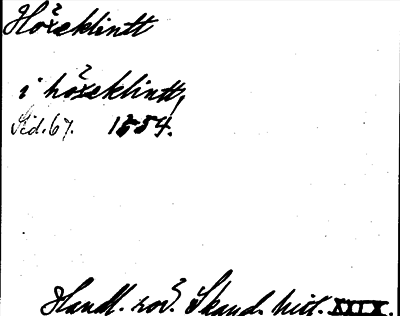 Höxeklintt
i höxeklintt,
Sid. 67. 1554.
Handl. rör. Skand. hist. XXIX.